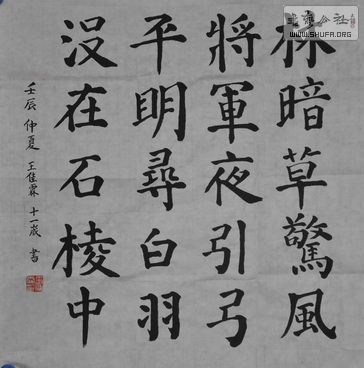 林暗草驚風
將軍夜引弓
平明尋白羽
没在石棱中
壬辰仲夏 王佳霖 十一歲 書
WWW.SHUFA.ORG